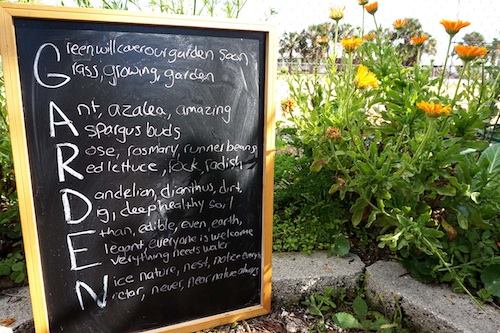 Green will cover our garden soon
Grass, growing, garden
Ant, azalea, amazing
Aspargus buds
Rose, rosmary, runner beans
Red lettuce, rock, radish
Dandelion, dianthus, dirt
Dig, deep healthy soil
Ethan, edible, even, earth,
Elegant, everyone is welcome
Everything needs water
Nice nature, nest, notice
Nectar, never, near nature always